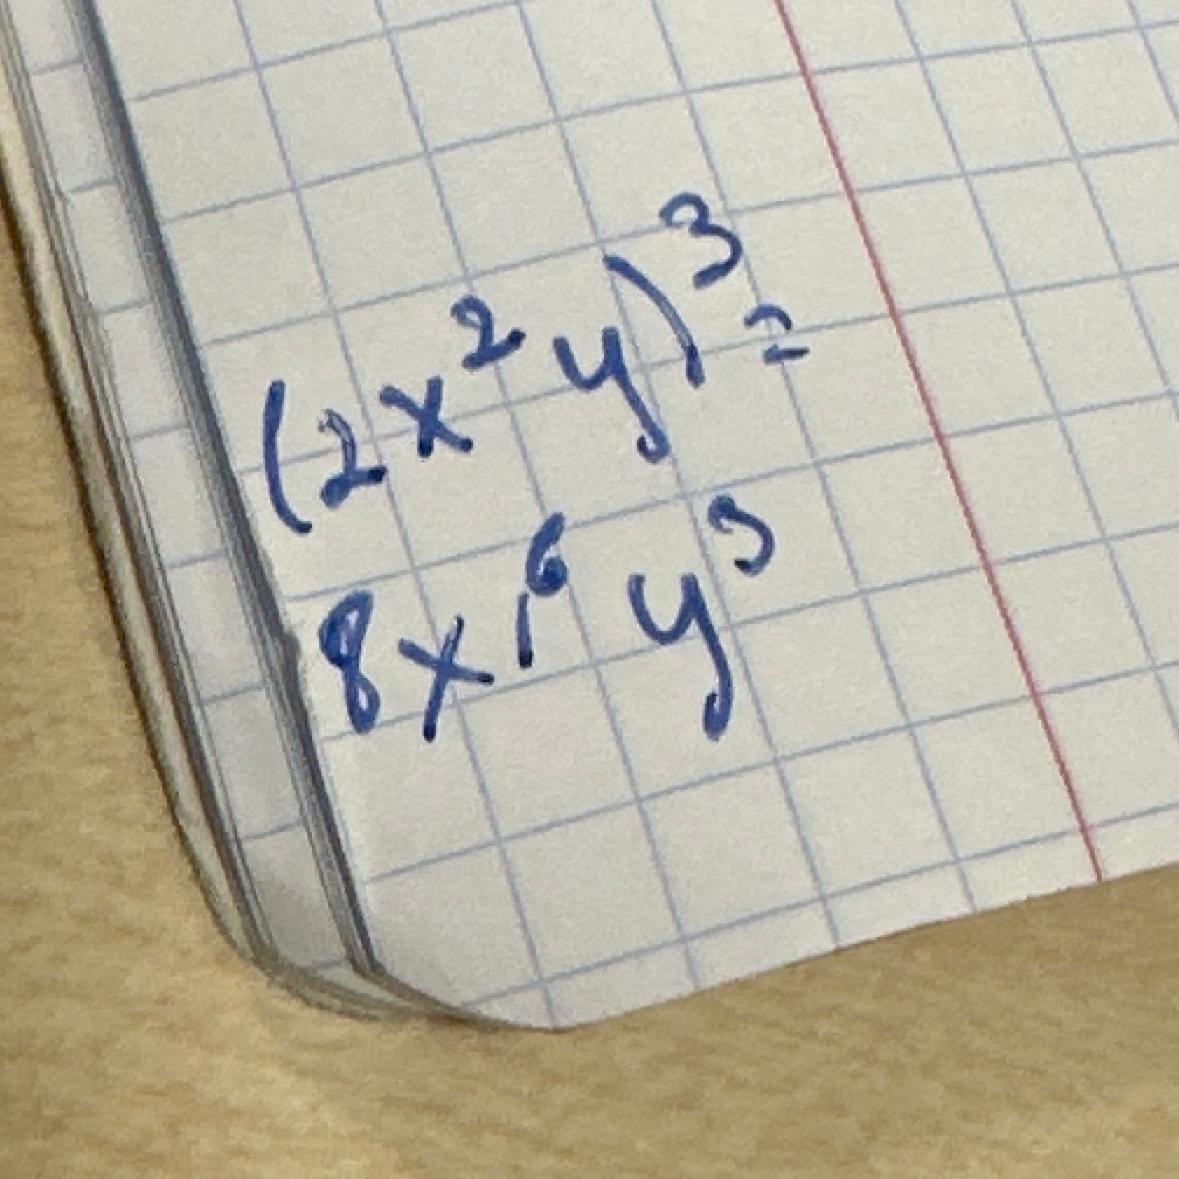 (2x²y)³=
8x⁶y³